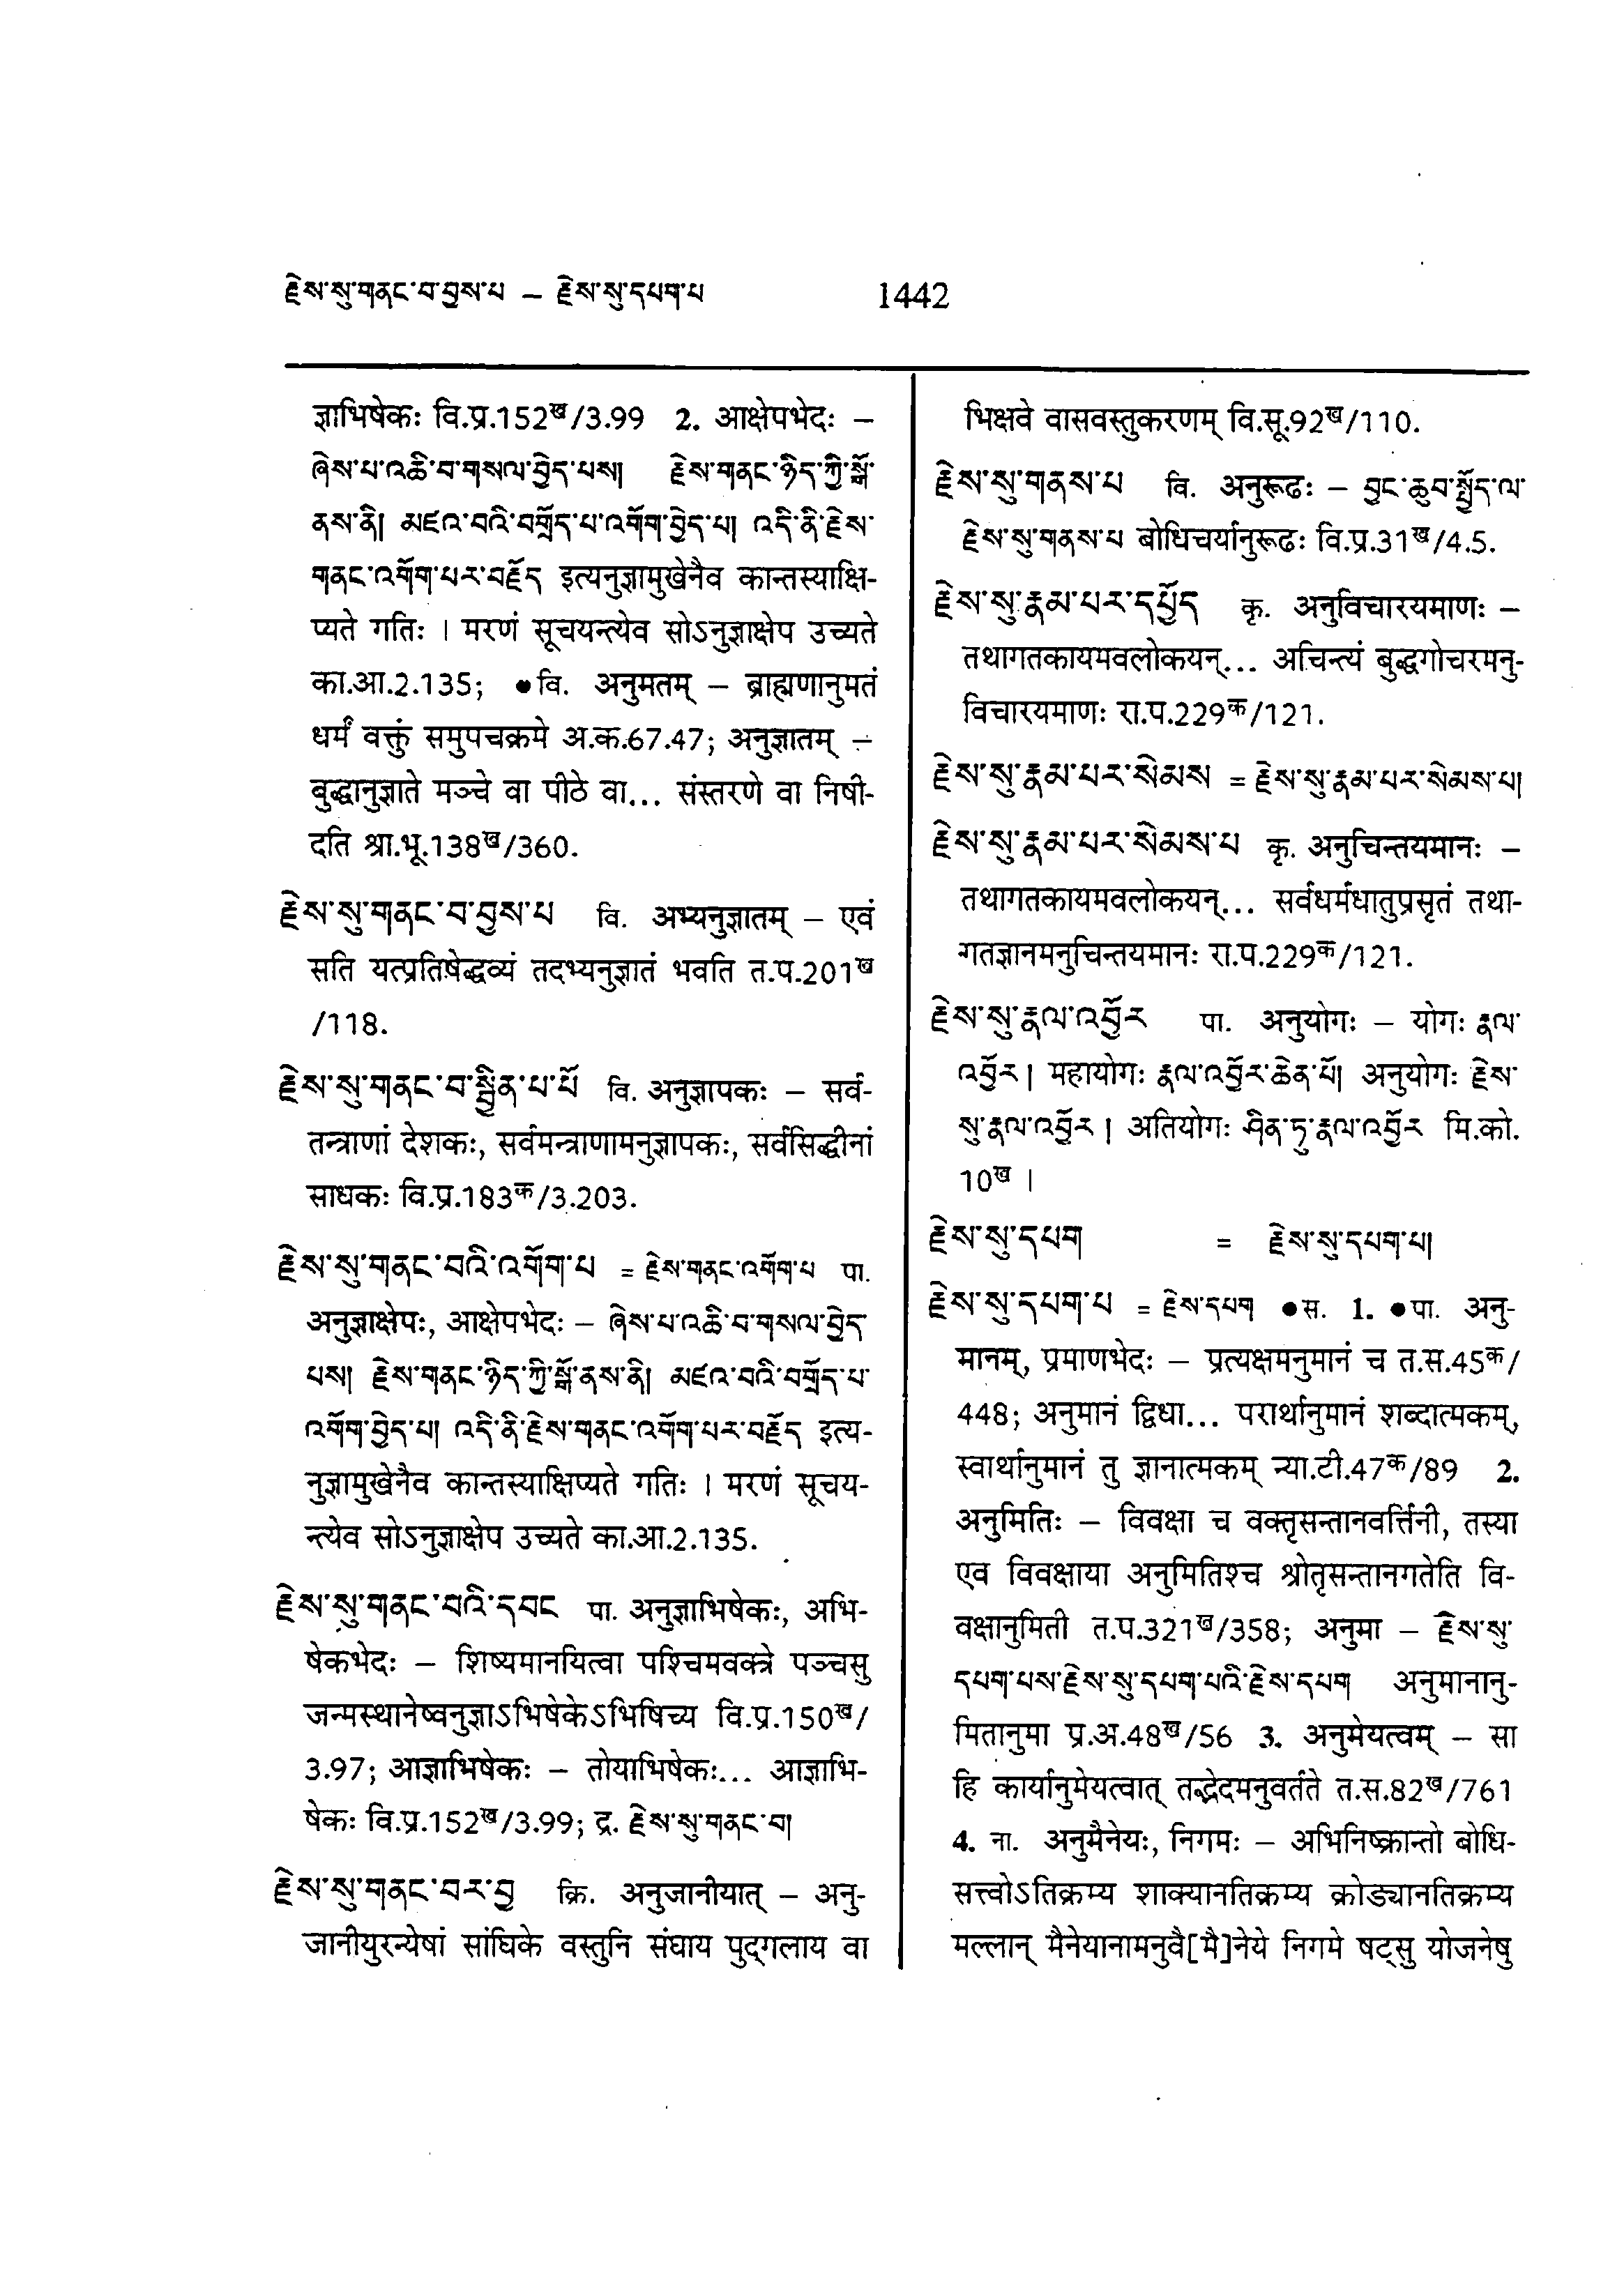 རྗེས་སུ་གནང་བ་བྱས་པ – རྗེས་སུ་དཔག་པ 1442
ज्ञाभिषेकः वि.प्र.152ख/3.99 2. आक्षेपभेदः –
ཞེས་པ་འཆི་བ་གསལ་བྱེད་པས། རྗེས་གནང་ཉིད་ཀྱི་སྒོ་
ནས་ནི། མཛའ་བའི་བགྲོད་པ་འགོག་བྱེད་པ། འདི་ནི་རྗེས་
གནང་འགོག་པར་བརྗོད इत्यनुज्ञामुखेनैव कान्तस्याक्षि-
प्यते गतिः । मरणं सूचयन्त्येव सोऽनुज्ञाक्षेप उच्यते
का.आ.2.135; ●वि. अनुमतम् – ब्राह्मणानुमतं
धर्मं वक्तुं समुपचक्रमे अ.क.67.47; अनुज्ञातम् –
बुद्धानुज्ञाते मञ्चे वा पीठे वा... संस्तरणे वा निषी-
दति श्रा.भू.138ख/360.
རྗེས་སུ་གནང་བ་བྱས་པ वि. अभ्यनुज्ञातम् – एवं
सति यत्प्रतिषेद्धव्यं तदभ्यनुज्ञातं भवति त.प.201ख
/118.
རྗེས་སུ་གནང་བ་སྦྱིན་པ་པོ वि. अनुज्ञापकः – सर्व-
तन्त्राणां देशकः, सर्वमन्त्राणामनुज्ञापकः, सर्वसिद्धीनां
साधकः वि.प्र.183क/3.203.
རྗེས་སུ་གནང་བའི་འགོག་པ = རྗེས་གནང་འགོག་པ पा.
अनुज्ञाक्षेपः, आक्षेपभेदः – ཞེས་པ་འཆི་བ་གསལ་བྱེད་
པས། རྗེས་གནང་ཉིད་ཀྱི་སྒོ་ནས་ནི། མཛའ་བའི་བགྲོད་པ་
འགོག་བྱེད་པ། འདི་ནི་རྗེས་གནང་འགོག་པར་བརྗོད इत्य-
नुज्ञामुखेनैव कान्तस्याक्षिप्यते गतिः । मरणं सूचय-
न्त्येव सोऽनुज्ञाक्षेप उच्यते का.आ.2.135.
རྗེས་སུ་གནང་བའི་དབང पा. अनुज्ञाभिषेकः, अभि-
षेकभेदः – शिष्यमानयित्वा पश्चिमवक्त्रे पञ्चसु
जन्मस्थानेष्वनुज्ञाऽभिषेकेऽभिषिच्य वि.प्र.150ख/
3.97; आज्ञाभिषेकः – तोयाभिषेकः... आज्ञाभि-
षेकः वि.प्र.152ख/3.99; द्र. རྗེས་སུ་གནང་བ།
རྗེས་སུ་གནང་བར་བྱ क्रि. अनुजानीयात् – अनु-
जानीयुरन्येषां सांघिके वस्तुनि संघाय पुद्गलाय वा
भिक्षवे वासवस्तुकरणम् वि.सू.92ख/110.
རྗེས་སུ་གནས་པ वि. अनुरूढः – བྱང་ཆུབ་སྤྱོད་ལ་
རྗེས་སུ་གནས་པ बोधिचर्यानुरूढः वि.प्र.31ख/4.5.
རྗེས་སུ་རྣམ་པར་དཔྱོད कृ. अनुविचारयमाणः –
तथागतकायमवलोकयन्... अचिन्त्यं बुद्धगोचरमनु-
विचारयमाणः रा.प.229क/121.
རྗེས་སུ་རྣམ་པར་སེམས = རྗེས་སུ་རྣམ་པར་སེམས་པ།
རྗེས་སུ་རྣམ་པར་སེམས་པ कृ. अनुचिन्तयमानः –
तथागतकायमवलोकयन्... सर्वधर्मधातुप्रसृतं तथा-
गतज्ञानमनुचिन्तयमानः रा.प.229क/121.
རྗེས་སུ་རྣལ་འབྱོར पा. अनुयोगः – योगः རྣལ་
འབྱོར། महायोगः རྣལ་འབྱོར་ཆེན་པོ། अनुयोगः རྗེས་
སུ་རྣལ་འབྱོར། अतियोगः ཤིན་ཏུ་རྣལ་འབྱོར मि.को.
10ख ।
རྗེས་སུ་དཔག = རྗེས་སུ་དཔག་པ།
རྗེས་སུ་དཔག་པ = རྗེས་དཔག ●स. 1. ●पा. अनु-
मानम्, प्रमाणभेदः – प्रत्यक्षमनुमानं च त.स.45क/
448; अनुमानं द्विधा... परार्थानुमानं शब्दात्मकम्,
स्वार्थानुमानं तु ज्ञानात्मकम् न्या.टी.47क/89 2.
अनुमितिः – विवक्षा च वक्तृसन्तानवर्त्तिनी, तस्या
एव विवक्षाया अनुमितिश्च श्रोतृसन्तानगतेति वि-
वक्षानुमिती त.प.321ख/358; अनुमा – རྗེས་སུ་
དཔག་པས་རྗེས་སུ་དཔག་པའི་རྗེས་དཔག अनुमानानु-
मितानुमा प्र.अ.48ख/56 3. अनुमेयत्वम् – सा
हि कार्यानुमेयत्वात् तद्भेदमनुवर्तते त.स.82ख/761
4. ना. अनुमैनेयः, निगमः – अभिनिष्क्रान्तो बोधि-
सत्त्वोऽतिक्रम्य शाक्यानतिक्रम्य क्रोड्यानतिक्रम्य
मल्लान् मैनेयानामनुवै[मै]नेये निगमे षट्सु योजनेषु